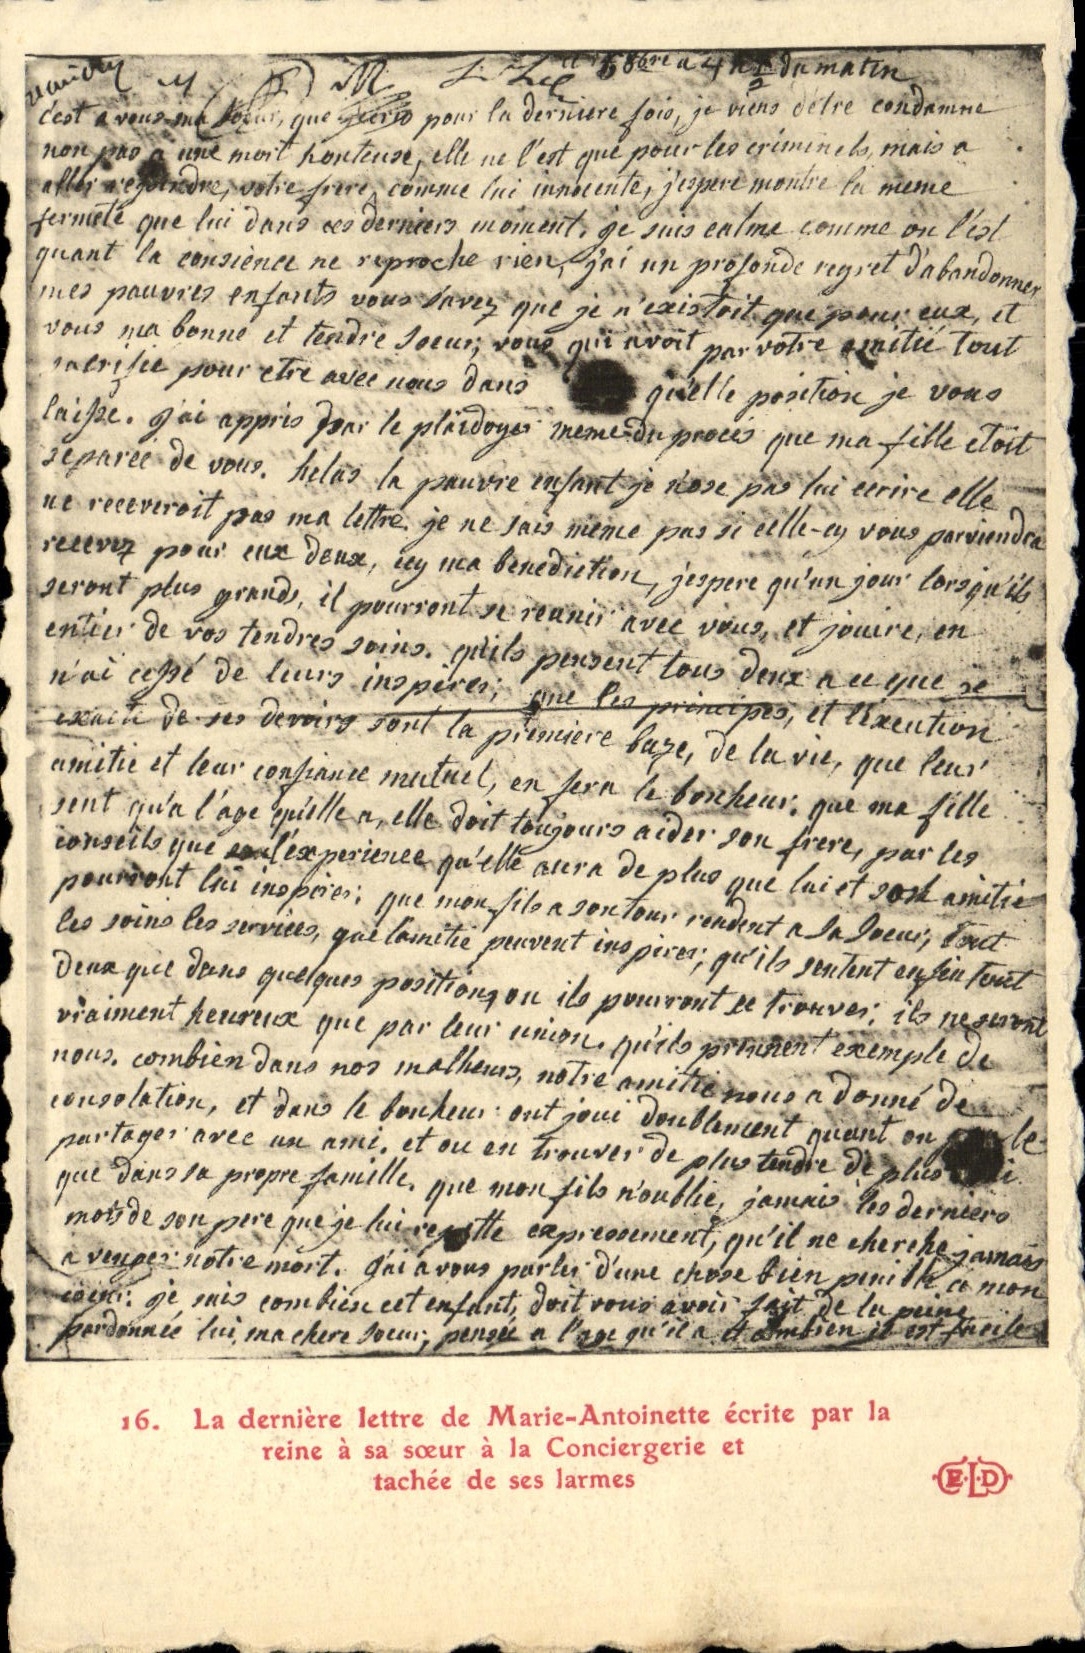 8bre a 4 h ½ du matin
c'est a vous ma soeur, que j'ecris pour la derniere fois, je viens d'etre condamne
non pas a une mort honteuse, elle ne l'est que pour les criminels, mais a
aller rejoindre, votre frere, comme lui innocente, j'espere montre la meme
fermeté que lui dans ces derniers moment. je suis calme comme on l'est
quant la consience ne reproche rien, j'ai un profonde regret d'abandonner
mes pauvres enfants vous savez que je n'existoit que pour eux, et
vous ma bonne et tendre soeur, vous qui avoit par votre amitié tout
sacrifié pour etre avec nous dans qu'elle position je vous
laisse. j'ai appris par le plaidoyer meme du proces que ma fille etoit
separée de vous. helas la pauvre enfant je n'ose pas lui ecrire elle
ne receveroit pas ma lettre je ne sais meme pas si celle-cy vous parviendra
recevez pour eux deux, icy ma benediction, j'espere qu'un jour lorsqu'ils
seront plus grands, il pourront se reunir avec vous, et jouire, en
entier de vos tendres soins. qu'ils pensent tous deux a ce que je
n'ai cessé de leurs inspirer; que les principes, et l'éxecution
exacte de ses devoirs sont la premiere baze, de la vie, que leur
amitié et leur confiance mutuel, en fera le bonheur. que ma fille
sent qu'a l'age qu'elle a, elle doit toujours aider son frere, par les
conseils que l'éxperience qu'elle aura de plus que lui et son amitié
pourront lui inspirer; que mon fils a son tour rendent a sa soeur, tout
les soins les services, que l'amitié peuvent inspirer; qu'ils sentent enfin tout
deux que dans quelques positions, ou ils pourront se trouver; ils ne seront
vraiment heureux que par leur union. qu'ils prennent exemple de
nous. combien dans nos malheurs, notre amitié nous a donné de
consolation, et dans le bonheur ont joui doublement quant on le
partager avec un ami. et ou en trouver de plus tendre de plus
que dans sa propre famille. que mon fils n'oublie, jamais les derniers
mots de son pere que je lui repette expressement, qu'il ne cherche jamais
a venger notre mort. j'ai a vous parler d'une chose bien penible a mon
coeur. je sais combien cet enfant, doit vous avoir fait de la peine
pardonnée lui, ma chere soeur; pensée a l'age qu'il a et combien il est facile
16. La dernière lettre de Marie-Antoinette écrite par la
reine à sa sœur à la Conciergerie et
tachée de ses larmes
ELD